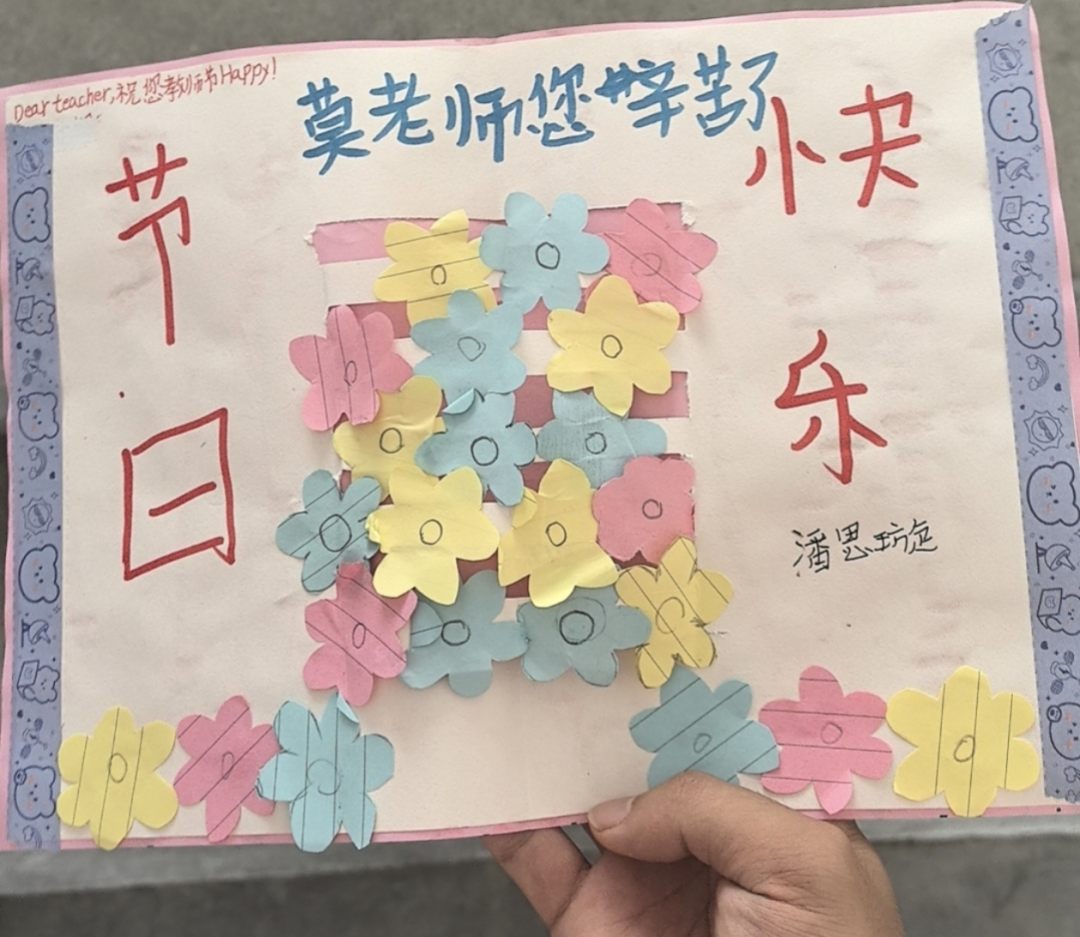 Dear teacher,祝您教师节Happy!
莫老师您辛苦了
节日
快乐
潘思